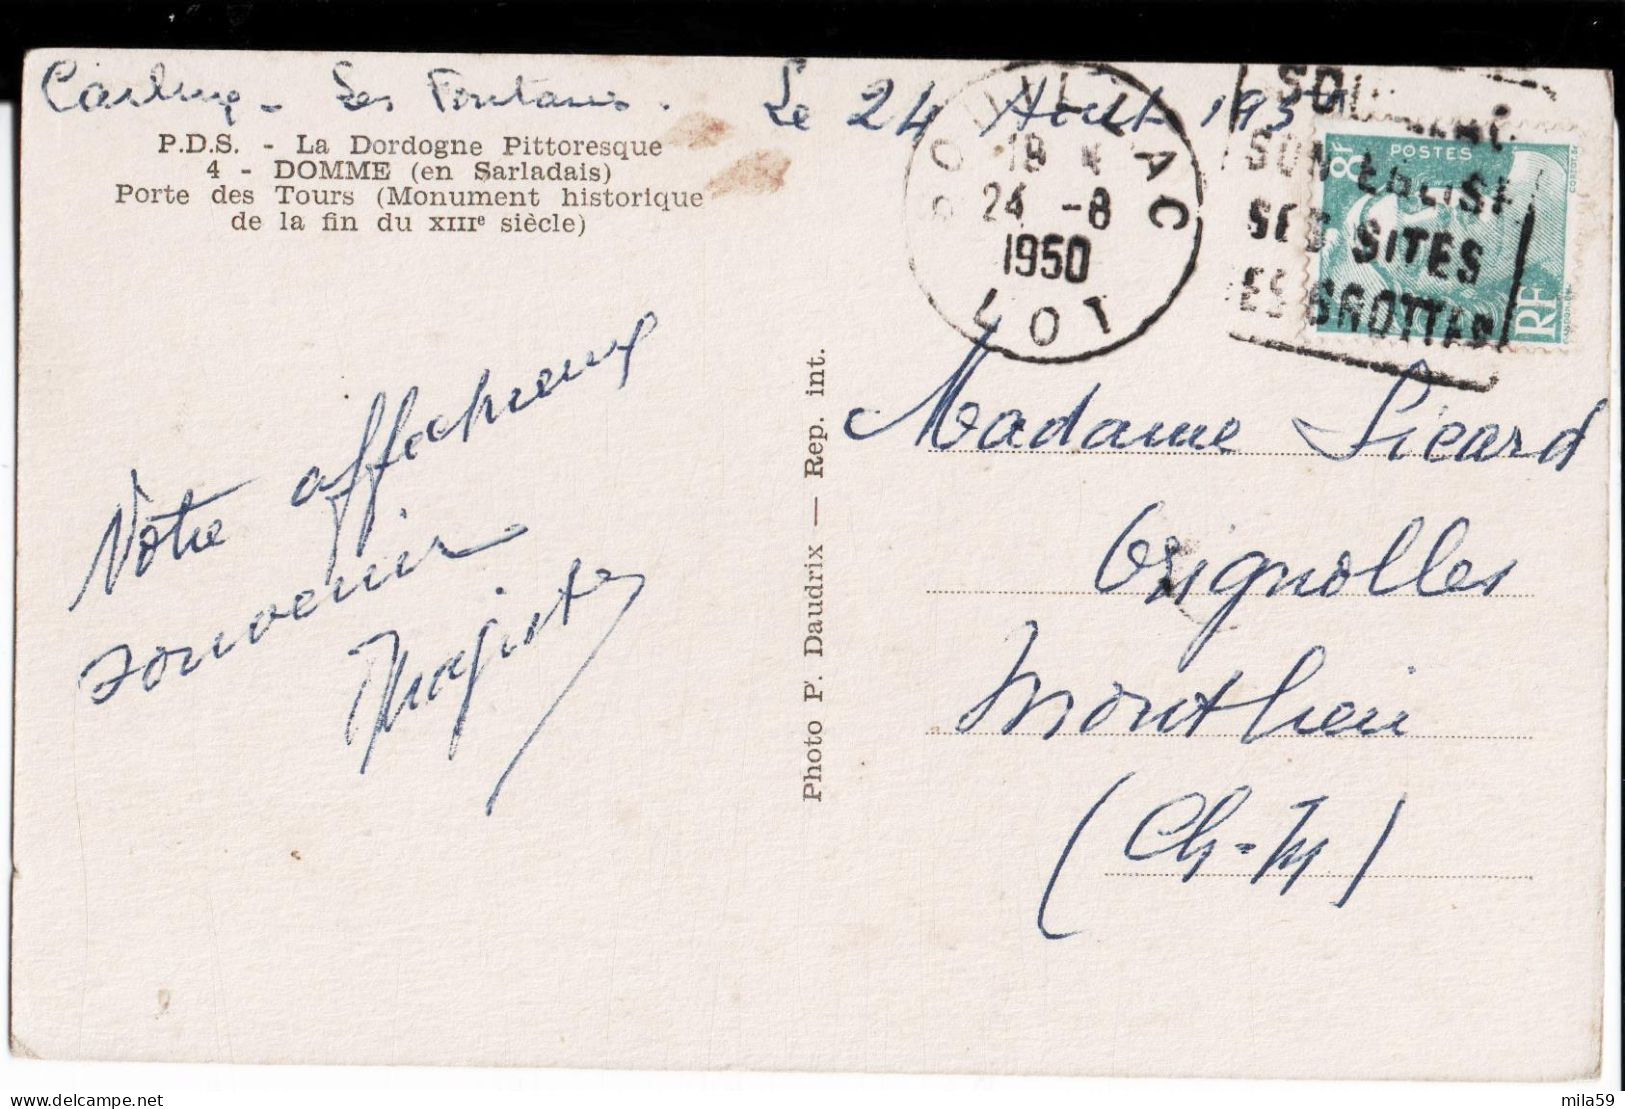 Carlux - Les Fontanes. Le 24 Août 1950
P.D.S. - La Dordogne Pittoresque
4 - DOMME (en Sarladais)
Porte des Tours (Monument historique
de la fin du XIIIe siècle)
SOUILLAC
19 H
24 -8
1950
LOT
SOUILLAC
SON EGLISE
SES SITES
SES GROTTES
8F POSTES
RF
Votre affectueux
souvenir
Photo P. Daudrix — Rep. int.
Madame Sicard
Orignolles
Montlieu
(Ch-M)
mila59